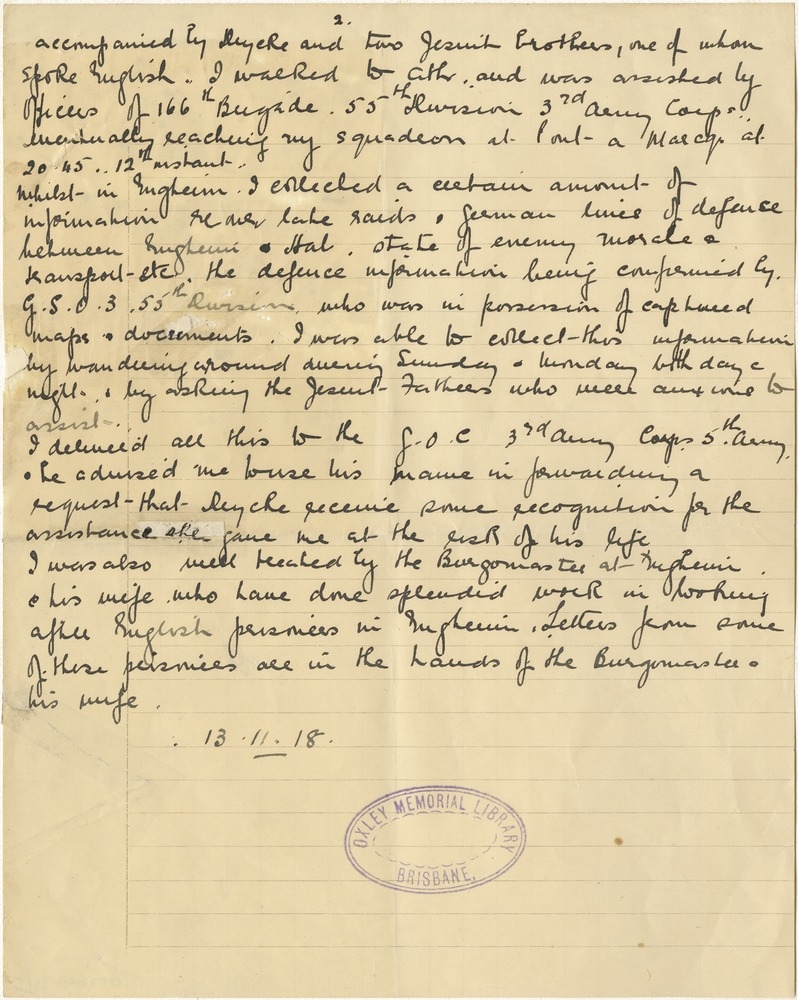 2.
accompanied by Deycke and two Jesuit brothers, one of whom
spoke English. I walked to Ath, and was assisted by
Officers of 166th Brigade. 55th Division 3rd Army Corps
eventually reaching my squadron at Pont-a Marcq at
20.45.. 12th instant..
Whilst in Enghein. I collected a certain amount of
information re our late raids & German lines of defence
between Enghein & Hal. state of enemy morale &
transport-etc, the defence information being confirmed by.
G.S.O.3. 55th Division, who was in possession of captured
maps & documents. I was able to collect this information
by wandering around during Sunday & Monday both day &
night. & by asking the Jesuit Fathers who were anxious to
assist.
I delivered all this to the G.O.C 3rd Army Corps 5th Army,
& he advised me to use his name in forwarding a
request that Deycke receive some recognition for the
assistance gave me at the risk of his life
I was also well treated by the Burgomaster at Enghein.
& his wife who have done splendid work in looking
after English prisoners in Enghein. Letters from some
of these prisoners are in the hands of the Burgomaster &
his wife.
13.11.18.
OXLEY MEMORIAL LIBRARY
BRISBANE.